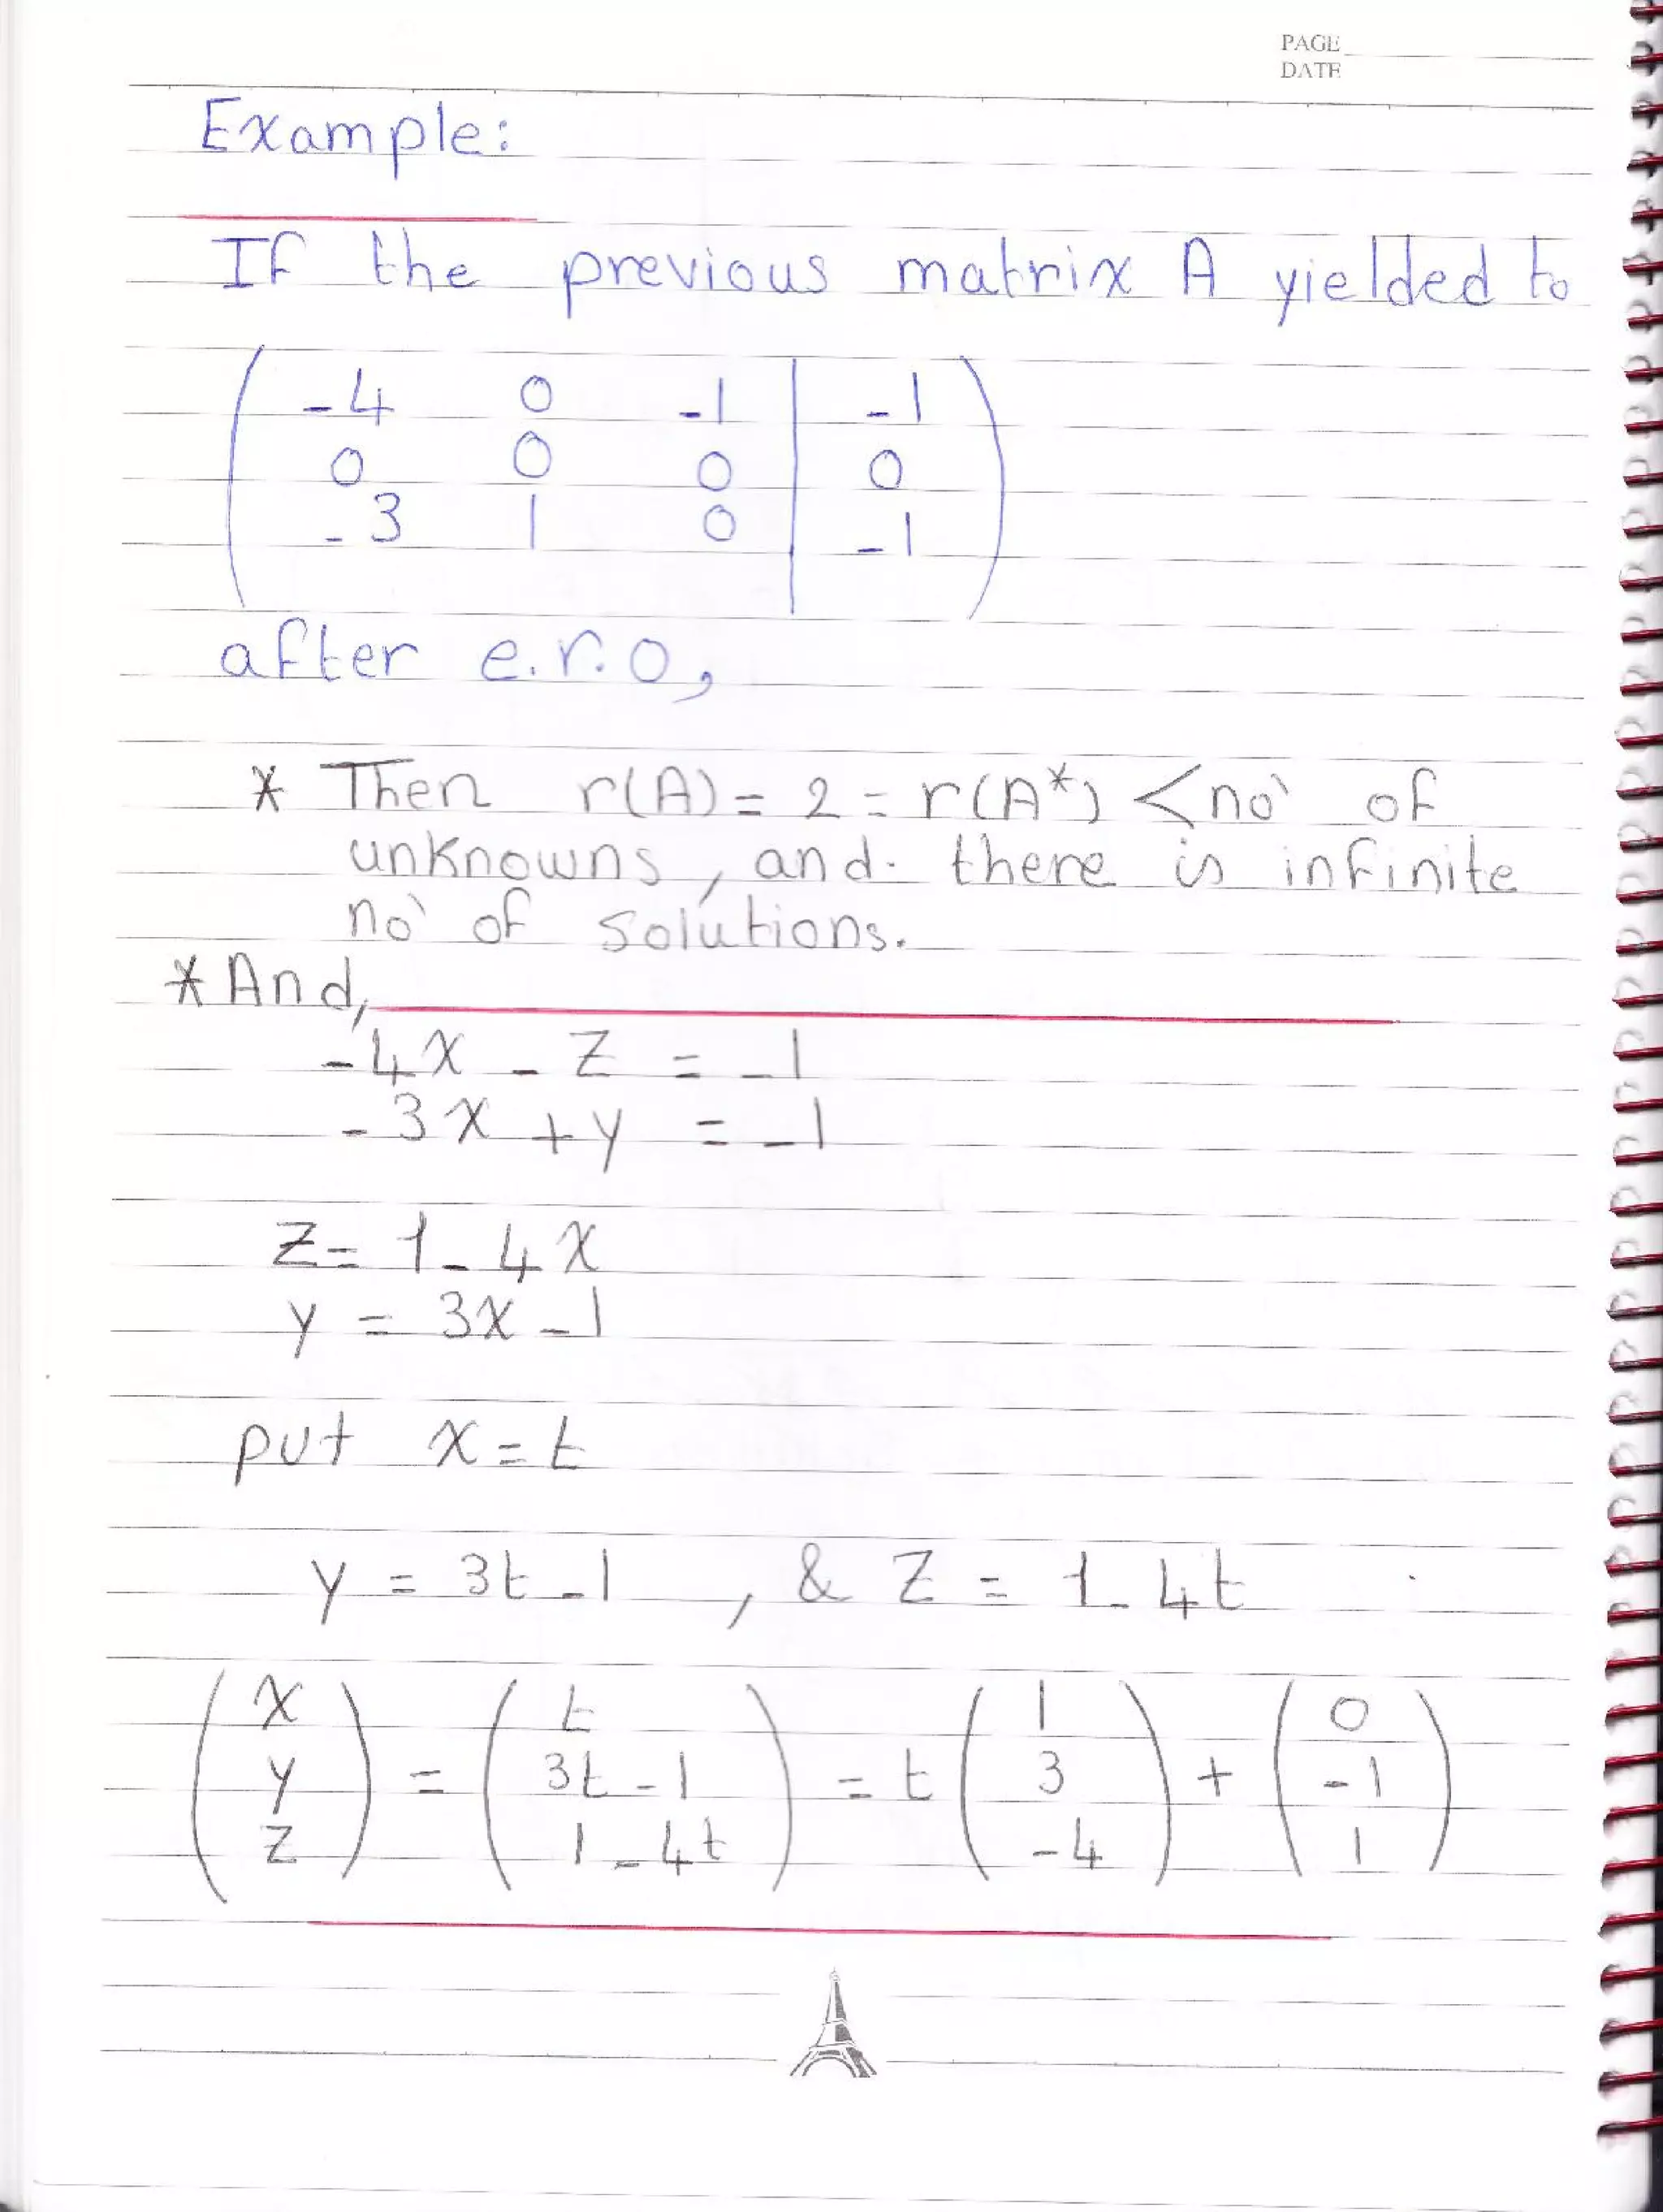 PAGE
DATE
Example:
If the previous matrix A yielded to
-4 0 -1 | -1
0 0 0 | 0
-3 1 0 | -1
after e.r.o,
* Then r(A) = 2 = r(A*) < no of
unknowns, and there is infinite
no of solutions.
* And,
-4x - z = -1
-3x + y = -1
z = 1 - 4x
y = 3x - 1
put x = t
y = 3t - 1 , & z = 1 - 4t
( x ) = ( t ) = t ( 1 ) + ( 0 )
( y ) ( 3t - 1 ) ( 3 ) ( -1 )
( z ) ( 1 - 4t ) ( -4 ) ( 1 )